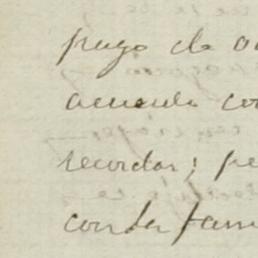 pago de a
acuerdo co
recordar; pe
contar fam